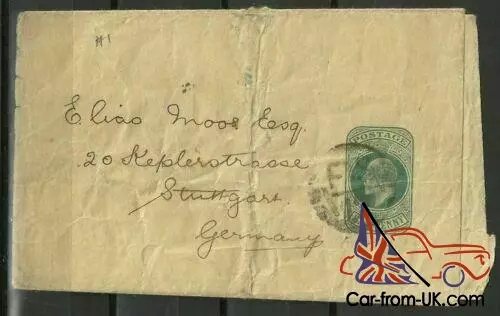 #1
Elias Moos Esq.
20 Keplerstrasse
Stuttgart.
Germany
POSTAGE
Car-from-UK.com